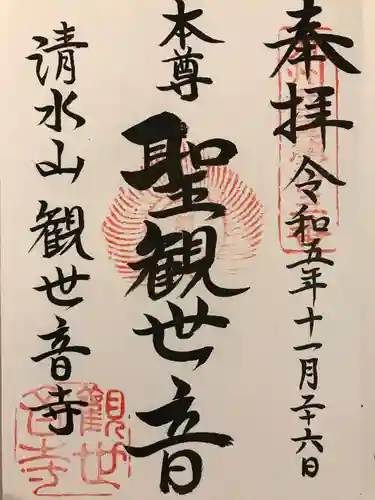 奉拝
令和五年十一月二十六日
本尊
聖観世音
清水山観世音寺
観世
音寺